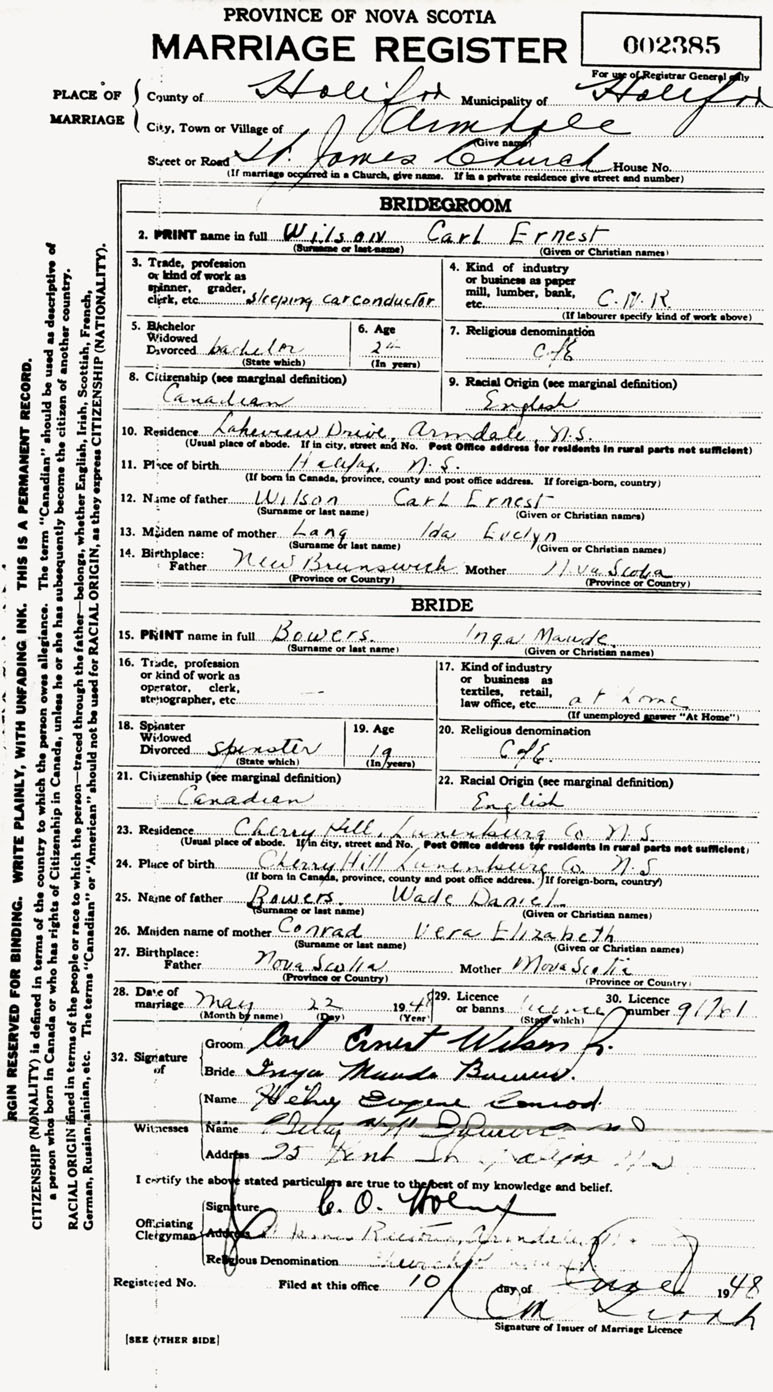 PROVINCE OF NOVA SCOTIA
MARRIAGE REGISTER
002385
For use of Registrar General only
PLACE OF MARRIAGE
County of Halifax Municipality of Halifax
City, Town or Village of Armdale
(Give name)
Street or Road St. James Church House No.
(If marriage occurred in a Church, give name. If in a private residence give street and number)
BRIDEGROOM
2. PRINT name in full Wilson Carl Ernest
(Surname or last-name) (Given or Christian names)
3. Trade, profession or kind of work as spinner, grader, clerk, etc. sleeping car conductor
4. Kind of industry or business as paper mill, lumber, bank, etc. C.N.R.
(If labourer specify kind of work above)
5. Bachelor Widowed Divorced bachelor
(State which)
6. Age
(In years)
7. Religious denomination
C of E
8. Citizenship (see marginal definition)
Canadian
9. Racial Origin (see marginal definition)
English
10. Residence Lakeview Drive, Armdale, N.S.
(Usual place of abode. If in city, street and No. Post Office address for residents in rural parts not sufficient)
11. Place of birth Halifax, N.S.
(If born in Canada, province, county and post office address. If foreign-born, country)
12. Name of father Wilson Carl Ernest
(Surname or last name) (Given or Christian names)
13. Maiden name of mother Lang Ida Evelyn
(Surname or last name) (Given or Christian names)
14. Birthplace: Father New Brunswick Mother Nova Scotia
(Province or Country) (Province or Country)
BRIDE
15. PRINT name in full Bowers. Inga Maude.
(Surname or last name) (Given or Christian names)
16. Trade, profession or kind of work as operator, clerk, stenographer, etc. —
17. Kind of industry or business as textiles, retail, law office, etc. at home
(If unemployed answer "At Home")
18. Spinster Widowed Divorced spinster
(State which)
19. Age
19
(In years)
20. Religious denomination
C of E
21. Citizenship (see marginal definition)
Canadian
22. Racial Origin (see marginal definition)
English
23. Residence Cherry Hill, Lunenburg Co. N.S.
(Usual place of abode. If in city, street and No. Post Office address for residents in rural parts not sufficient)
24. Place of birth Cherry Hill Lunenburg Co. N.S
(If born in Canada, province, county and post office address. If foreign-born, country)
25. Name of father Bowers. Wade Daniel
(Surname or last name) (Given or Christian names)
26. Maiden name of mother Conrad Vera Elizabeth
(Surname or last name) (Given or Christian names)
27. Birthplace: Father Nova Scotia Mother Nova Scotia
(Province or Country) (Province or Country)
28. Date of marriage May 22 1948
(Month by name) (Day) (Year)
29. Licence or banns licence
(State which)
30. Licence number 91781
32. Signature of
Groom Carl Ernest Wilson Jr.
Bride Inga Maude Bowers.
Witnesses
Name Eugene Conrad
Name
Address 25 Kent St.
I certify the above stated particulars are true to the best of my knowledge and belief.
Officiating Clergyman
Signature C. O.
Address St James Rectory, Armdale
Religious Denomination Church of
Registered No. Filed at this office 10 day of June 1948
Signature of Issuer of Marriage Licence
[SEE OTHER SIDE]
RGIN RESERVED FOR BINDING. WRITE PLAINLY, WITH UNFADING INK. THIS IS A PERMANENT RECORD.
CITIZENSHIP (NATIONALITY) is defined in terms of the country to which the person owes allegiance. The term "Canadian" should be used as descriptive of
a person who is born in Canada or who has rights of Citizenship in Canada, unless he or she has subsequently become the citizen of another country.
RACIAL ORIGIN is defined in terms of the people or race to which the person—traced through the father—belongs, whether English, Irish, Scottish, French,
German, Russian, Ukrainian, etc. The terms "Canadian" or "American" should not be used for RACIAL ORIGIN, as they express CITIZENSHIP (NATIONALITY).